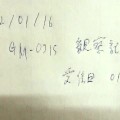 2/01/16
GM-0715 観察記
受信日 0